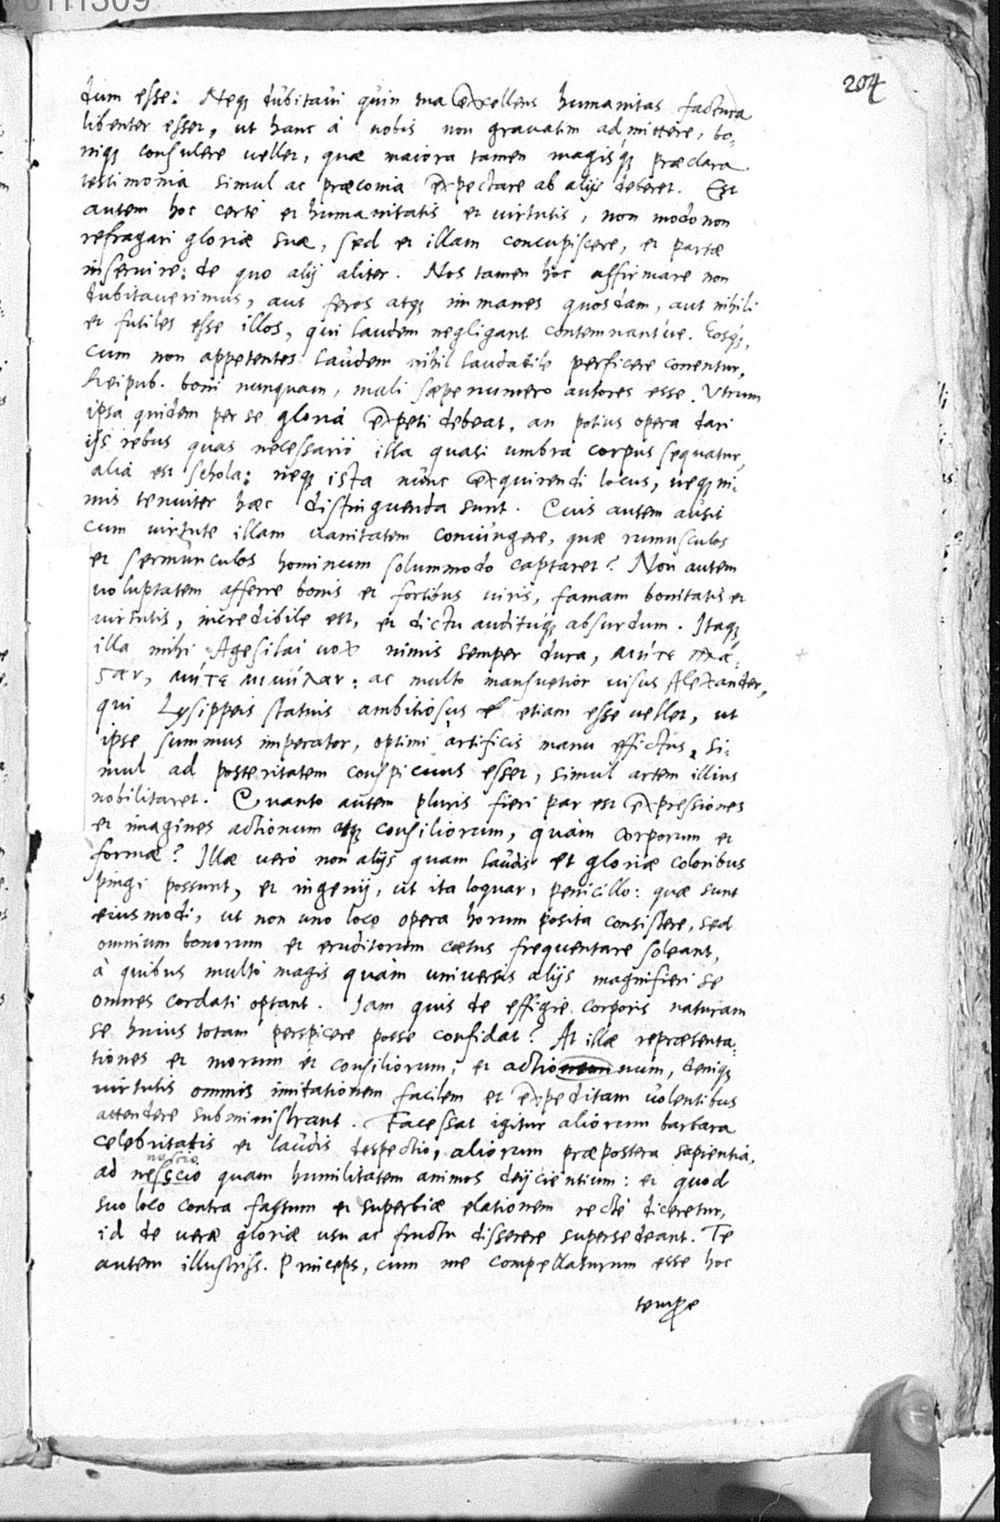 204
dum esse: Neq₃ dubitavi quin tua excellens humanitas factura
libenter esset, ut hanc à nobis non gravatim admittere, bo-
niq₃ consulere vellet, quæ maiora tamen magisq₃ præclara
testimonia simul ac præconia expectare ab alijs deberet. Est
autem hoc certè et humanitatis et virtutis, non modo non
refragari gloriæ suæ, sed et illam concupiscere, et partæ
inservire: de quo alij aliter. Nos tamen hoc affirmare non
dubitaverimus, aut feros atq₃ immanes quosdam, aut nihili
et futiles esse illos, qui laudem negligant contemnantve. Eosq₃,
cum non appetentes laudem nihil laudabile perficere conentur,
Reipub. boni nunquam, mali sæpenumero autores esse. Utrum
ipsa quidem per se gloria expeti debeat, an potius opera dari
ijs rebus quas necessariò illa quasi umbra corpus sequatur,
alia est schola: neq₃ ista nunc exquirendi locus, neq₃ ni-
mis tenuiter hæc distinguenda sunt. Quis autem ausit
cum virtute illam vanitatem coniungere, quæ rumusculos
et sermunculos hominum solummodo captaret? Non autem
voluptatem afferre bonis et fortibus viris, famam bonitatis et
virtutis, incredibile est, et dictu audituq₃ absurdum. Itaq₃
illa mihi Agesilai vox nimis semper dura, μήτε πλα-
σαν, μήτε μιμηλαν: ac multo mansuetior visus Alexander,
qui Lysippeis statuis ambitiosus etiam esse vellet, ut
ipse summus imperator, optimi artificis manu effictus, si-
mul ad posteritatem conspicuus esset, simul artem illius
nobilitaret. Quanto autem pluris fieri par est expressiones
et imagines actionum atq₃ consiliorum, quàm corporum et
formæ? Illæ verò non alijs quam laudis et gloriæ coloribus
pingi possunt, et ingenij, ut ita loquar, penicillo: quæ sunt
eiusmodi, ut non uno loco opera horum posita consistere, sed
omnium bonorum et eruditorum cœtus frequentare soleant,
à quibus multò magis quàm universis alijs magnifieri se
omnes cordati optant. Iam quis de effigie corporis naturam
se huius totam perspicere posse confidat? At illæ repræsenta-
tiones et morum et consiliorum, et actionum, deniq₃
virtutis omnis imitationem facilem et expeditam volentibus
attendere subministrant. Facessat igitur aliorum barbara
celebritatis et laudis despectio, aliorum præpostera sapientia,
nescio
ad nesscio quam humilitatem animos dejicientium: et quod
suo loco contra fastum et superbiæ elationem rectè diceretur,
id de veræ gloriæ usu ac fructu disserere supersedeant. Te
autem illustriss. Princeps, cum me compellaturum esse hoc
tempore